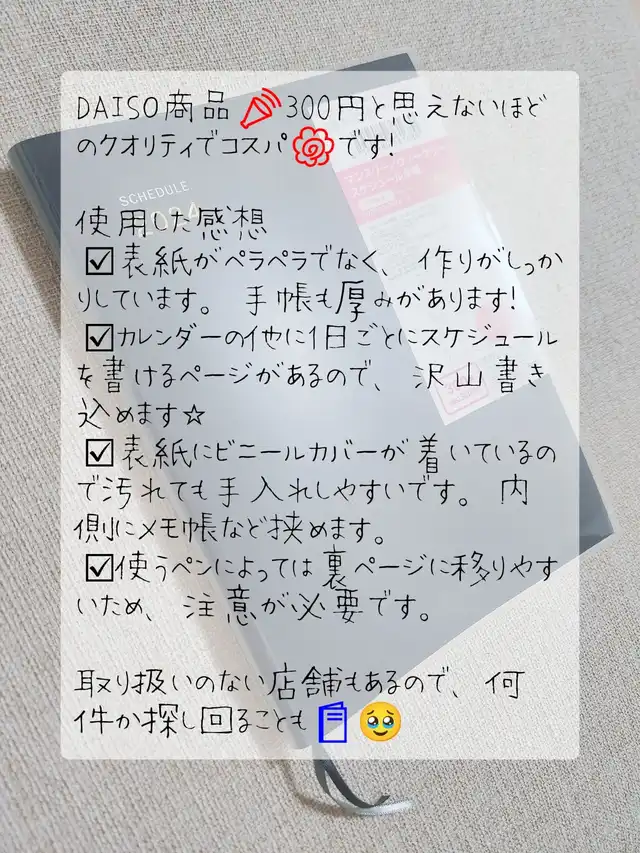 DAISO商品 300円と思えないほど
のクオリティでコスパ💮です!
使用した感想
☑表紙がペラペラでなく、作りがしっか
りしています。手帳も厚みがあります!
☑カレンダーの他に1日ごとにスケジュール
を書けるページがあるので、沢山書き
込めます☆
☑表紙にビニールカバーが着いているの
で汚れても手入れしやすいです。内
側にメモ帳など挟めます。
☑使うペンによっては裏ページに移りやす
いため、注意が必要です。
取り扱いのない店舗もあるので、何
件か探し回ることも🥹
SCHEDULE
2024